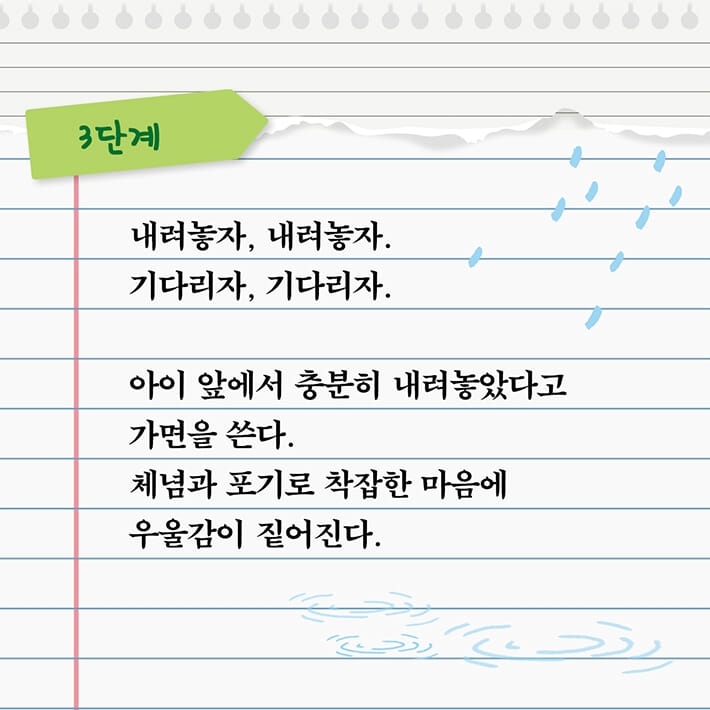 3단계
내려놓자, 내려놓자.
기다리자, 기다리자.
아이 앞에서 충분히 내려놓았다고
가면을 쓴다.
체념과 포기로 착잡한 마음에
우울감이 짙어진다.